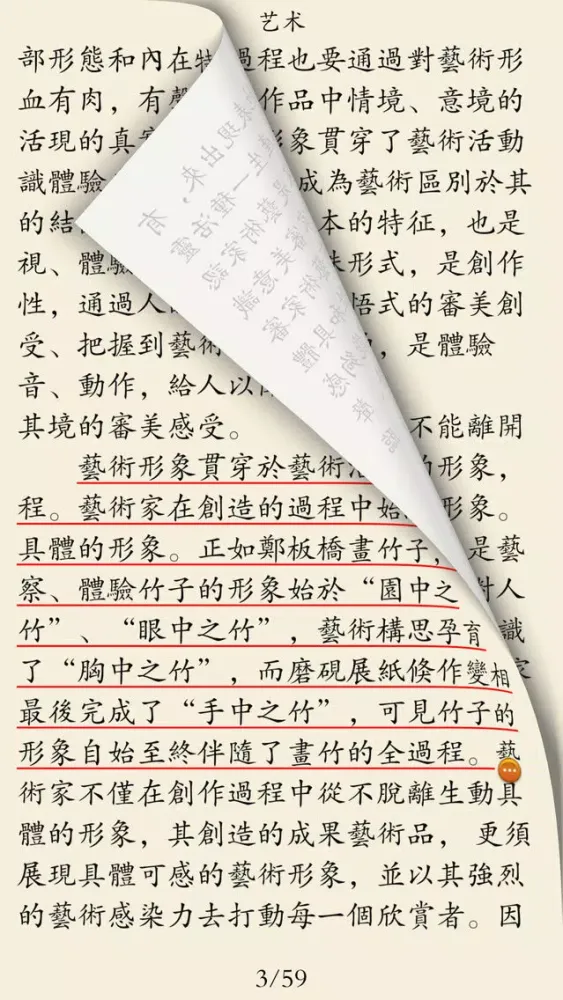 艺术
部形態和內在特 過程也要通過對藝術形
血有肉，有聲 作品中情境、意境的
活現的真 形象貫穿了藝術活動
識體驗 成為藝術區別於其
的結 本的特征，也是
視、體驗 形式，是創作
性，通過人 悟式的審美創
受、把握到藝術 ，是體驗
音、動作，給人以
其境的審美感受。 不能離開
藝術形象貫穿於藝術活 的形象，
程。藝術家在創造的過程中始 形象。
具體的形象。正如鄭板橋畫竹子， 是藝
察、體驗竹子的形象始於“園中之 對人
竹”、“眼中之竹”，藝術構思孕育 識
了“胸中之竹”，而磨硯展紙倏作變相 家
最後完成了“手中之竹”，可見竹子的
形象自始至終伴隨了畫竹的全過程。藝
術家不僅在創作過程中從不脫離生動具
體的形象，其創造的成果藝術品， 更須
展現具體可感的藝術形象，並以其強烈
的藝術感染力去打動每一個欣賞者。因
3/59